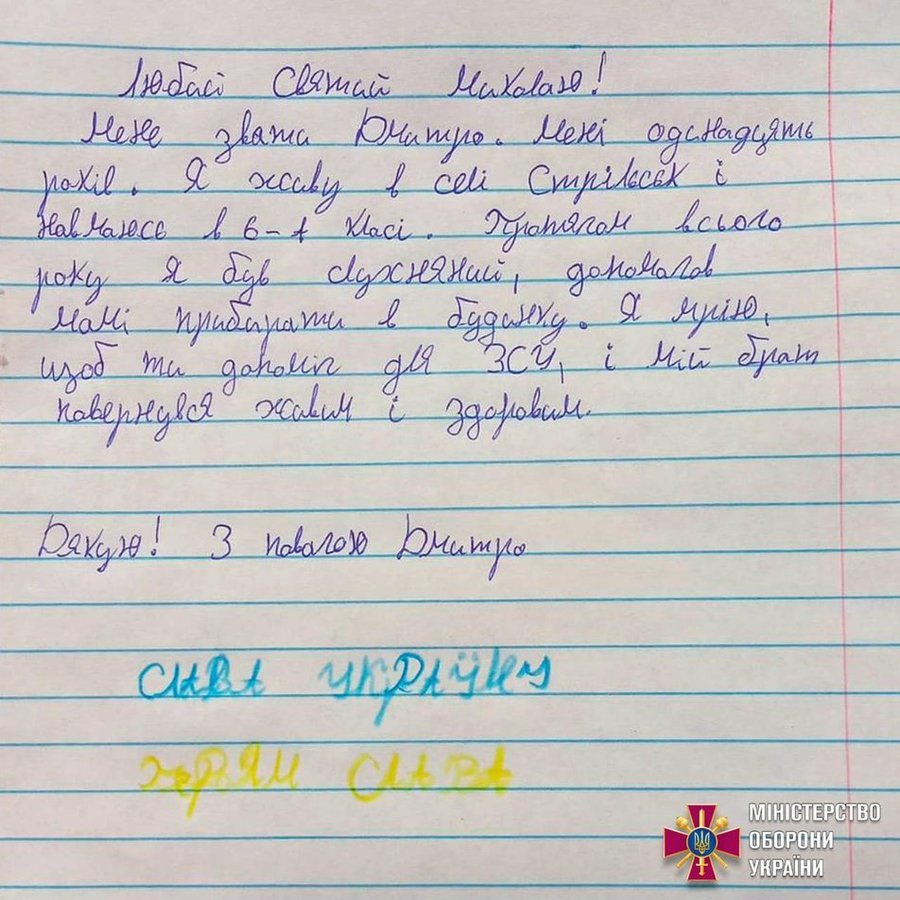 Любий Святий Миколаю!
Мене звати Дмитро. Мені одинадцять
років. Я живу в селі Стрільськ і
навчаюсь в 6-А класі. Протягом всього
року я був слухняний, допомагав
мамі прибирати в будинку. Я мрію,
щоб ти допоміг для ЗСУ, і мій брат
повернувся живим і здоровим.
Дякую! З повагою Дмитро
СЛАВА УКРАЇНІ
ГЕРОЯМ СЛАВА
МІНІСТЕРСТВО
ОБОРОНИ
УКРАЇНИ